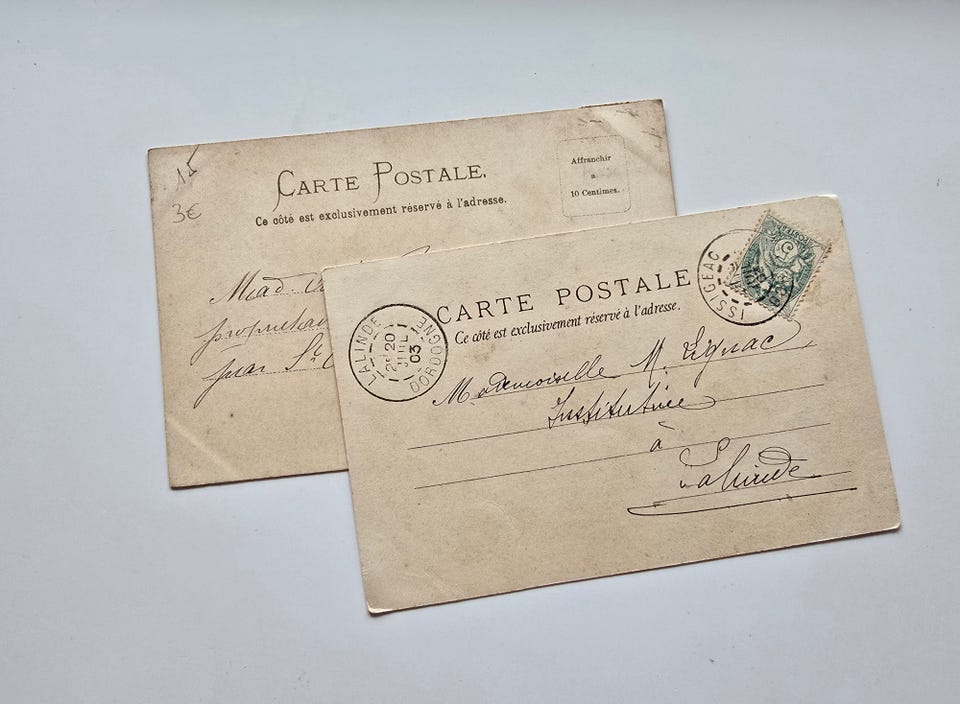 15
3€
CARTE POSTALE.
Ce côté est exclusivement réservé à l'adresse.
Affranchir
a
10 Centimes.
Mad.
propriétai
par St
CARTE POSTALE
Ce côté est exclusivement réservé à l'adresse.
LALINDE
2E 20
JUIL
03
DORDOGNE
ISSIGEAC
5
POSTES
Mademoiselle M. Lignac
Institutrice
à
Lalinde